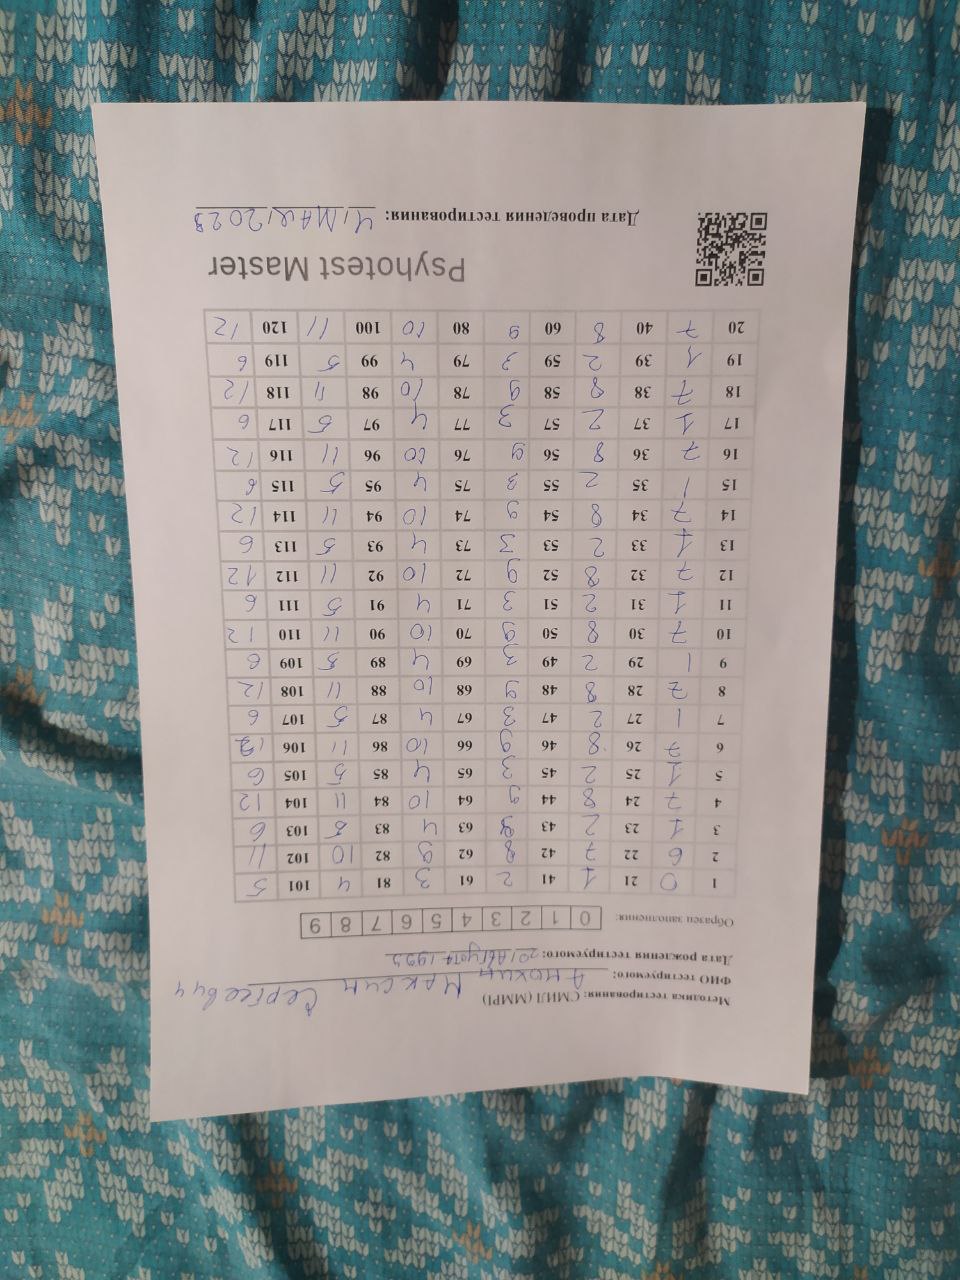 Методика тестирования: СМИЛ (MMPI)
ФИО тестируемого: Анохин Максим Сергеевич
Дата рождения тестируемого: 20/Августа/
Образец заполнения: 0 1 2 3 4 5 6 7 8 9
1 0 21 1 41 2 61 3 81 4 101 5
2 6 22 7 42 8 62 9 82 10 102 11
3 1 23 2 43 63 4 83 5 103 6
4 7 24 8 44 9 64 10 84 11 104 12
5 1 25 2 45 3 65 4 85 5 105 6
6 7 26 8 46 9 66 10 86 11 106 12
7 1 27 2 47 3 67 4 87 5 107 6
8 7 28 8 48 9 68 10 88 11 108 12
9 1 29 2 49 3 69 4 89 5 109 6
10 7 30 8 50 9 70 10 90 11 110 12
11 1 31 2 51 3 71 4 91 5 111 6
12 7 32 8 52 9 72 10 92 11 112 12
13 1 33 2 53 3 73 4 93 5 113 6
14 7 34 8 54 9 74 10 94 11 114 12
15 1 35 2 55 3 75 4 95 5 115 6
16 7 36 8 56 9 76 10 96 11 116 12
17 1 37 2 57 3 77 4 97 5 117 6
18 7 38 8 58 9 78 10 98 11 118 12
19 1 39 2 59 3 79 4 99 5 119 6
20 7 40 8 60 9 80 10 100 11 120 12
Psyhotest Master
Дата проведения тестирования: 4/МАЯ/2023